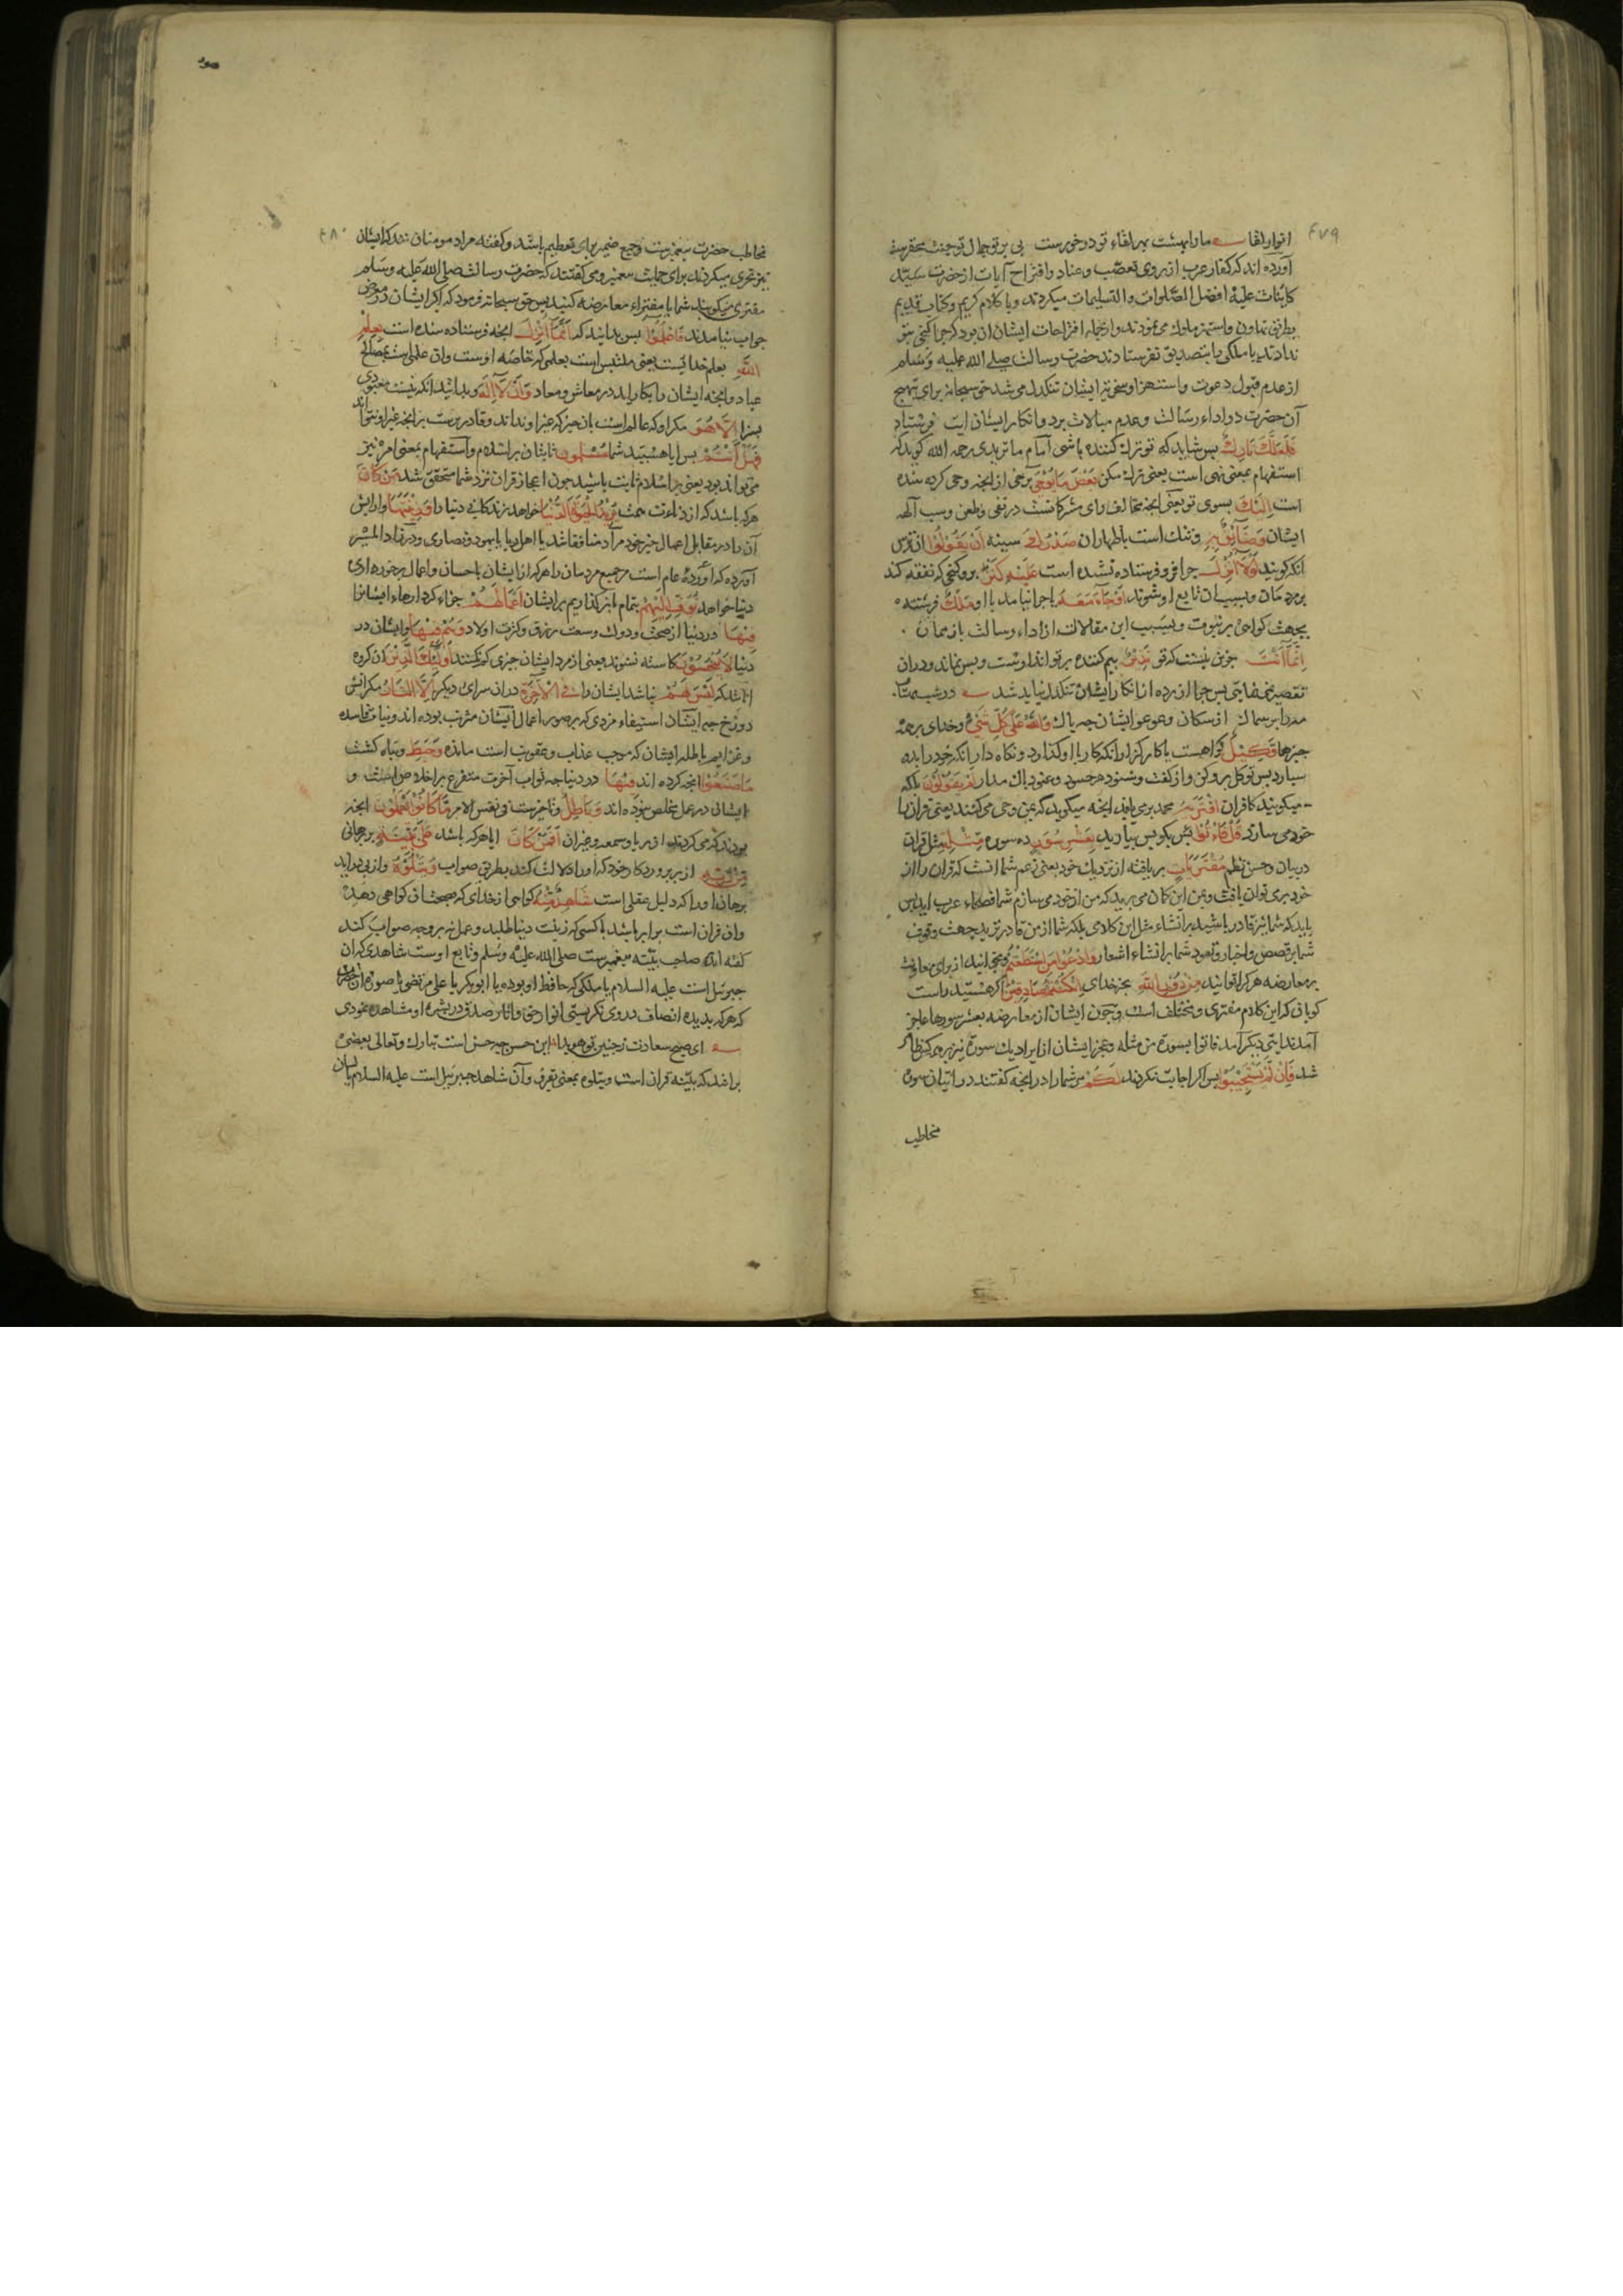 ٤٧٩
انوار لقا مارا بهشت بهر لقاء تو در خورست بی پرتو جمال تو جنت محقرست
آورده اند که کفار عرب از روی تعصّب و عناد و اقتراح آیات از حضرت سیّد
کاینات علیه افضل الصّلوات والتسلیمات میکردند و با کلام کریم و کتاب قدیم
بطریق تهاون و استهزا سلوک می نمودند و از جمله اقتراحات ایشان ان بود که چرا کنجی بتو
ندادند یا ملکی با بتصدیق تو نفرستادند حضرت رسالت صلی الله علیه وسلم
از عدم قبول دعوت و استهزا و سخریه ایشان تنکدل می شد حق سبحانه برای تهییج
آن حضرت در اداء رسالت و عدم مبالات برد و انکار ایشان ایت فرستاد
فَلَعَلَّكَ تَارِكٌ پس شاید که تو ترک کننده باشی امام ماتریدی رحمه الله کوید که
استفهام بمعنی نهی است یعنی ترک مکن بَعْضَ مَا يُوحَى برخی از انجه وحی کرده شده
است اِلَيْكَ بسوی تو یعنی انجه مخالف رای مشرکانست در نفی و طعن و سب آلهه
ایشان وَضَآئِقٌ بِهِ و تنک است باظهار ان صَدْرُكَ سینه اَنْ يَقُولُوا از ترس
انکه کویند لَوْلَا اُنْزِلَ چرا فرو فرستاده نشده است عَلَيْهِ كَنْزٌ برو کنجی که نفقه کند
بر مردمان و بسبب ان تابع او شوند اَوْ جَآءَ مَعَهُ یا چرا نیامد با او مَلَكٌ فرشته
بجهت کواهی بر نبوت و بسبب این مقالات از اداء رسالت باز ممان
اِنَّمَا اَنْتَ جزین نیست که تو نَذِيرٌ بیم کننده بر تو انذارست و بس نماند و در ان
تقصیر نمی نمایی پس چرا از رده از انکار ایشان تنکدل باید شد در شب مهتاب
مه را بر سماک از سکان و عوعو ایشان چه باک وَاللهُ عَلَى كُلِّ شَيْءٍ و خدای بر همه
چیزها وَكِيلٌ کواهست یا کارکزار انکه کار با او کذارد و نکاه دار انکه خود را بدو
سپارد پس توکل برو کن و از کفت و شنود هر حسود و عنود باک مدار اَمْ يَقُولُونَ بلکه
میکویند کافران افْتَرَيهُ محمد بر می بافد انجه میکوید که بمن وحی می کنند یعنی قران را
خود می سازد قُلْ فَأْتُوا پس بکو پس بیارید بِعَشْرِ سُوَرٍ ده سوره مِثْلِهِ مثل قران
در بیان و حسن نظم مُفْتَرَيَاتٍ بر بافته از نزدیک خود یعنی زعم شما انست که قران را از
خود بری توان بافت و بمن این کمان می برید که من از خود می سازم شما فصحاء عرب اید پس
باید که شما نیز قادر باشید بر انشاء مثل این کلام بلکه شما از من قادر ترید بجهت وقوف
شما بر قصص و اخبار و تعود شما بر انشاء اشعار وَادْعُوا مَنِ اسْتَطَعْتُمْ و بخوانید از برای معاونت
بر معارضه هر کرا توانید مِنْ دُونِ اللهِ بجز خدای اِنْ كُنْتُمْ صَادِقِينَ اکر هستید راست
کویان که این کلام مفتری و مختلق است و چون ایشان از معارضه بعشر سورها عاجز
آمدند ایتی دیکر آمد فاتوا بسورة من مثله و عجز ایشان از ایراد یک سوره نیز بر همکنان ظاهر
شد فَاِنْ لَمْ يَسْتَجِيبُوا پس اکر اجابت نکردند لَكُمْ مر شما را در انجه کفتند در اتیان سوره
مخاطب
٤٨٠
مخاطب حضرت پیغمبرست و جمع ضمیر برای تعظیم باشد و کفته مراد مومنان اند که ایشان
نیز تحدی میکردند برای حمایت پیغمبر و می کفتند که حضرت رسالت صلی الله علیه وسلم
مفتری میکویند شما با مفتراء معارضه کنید پس حق سبحانه فرمود که اکر ایشان در معرض
جواب نیامدند فَاعْلَمُوا پس بدانید که اَنَّمَا اُنْزِلَ انجه فرستاده شده است بِعِلْمِ
اللهِ بعلم خدایست یعنی ملتبس است بعلمی که خاصه اوست وان علم است بمصالح
عباد و انجه ایشان را بکار آید در معاش و معاد وَاَنْ لَا اِلٰهَ و بدانید انکه نیست معبودی
بسزا اِلَّا هُوَ مکر او که عالم است بان چیز که غیر او نداند و قادرست بر انجه غیر او نتواند
فَهَلْ اَنْتُمْ پس ایا هستید شما مُسْلِمُونَ ثابتان بر اسلام و استفهام بمعنی امر نیز
می تواند بود یعنی بر اسلام ثابت باشید چون اعجاز قران نزد شما متحقق شد مَنْ كَانَ
هر که باشد که از دناءت همت يُرِيدُ الْحَيٰوةَ الدُّنْيَا خواهد زندکانی دنیا را وَزِينَتَهَا و ارایش
آن را در مقابل اعمال خیر خود مراد منافقانند یا اهل ریا یا یهود و نصاری و در زاد المسیر
آورده که عام است مر جمیع مردمان را هر که از ایشان باحسان و اعمال بر خورداری
دنیا خواهد نُوَفِّ اِلَيْهِمْ بتمام باز کذاریم بر ایشان اَعْمَالَهُمْ جزاء کردارهاء ایشانرا
فِيهَا در دنیا از صحت و دولت و سعت رزق و کثرت اولاد وَهُمْ فِيهَا و ایشان در
دنیا لَا يُبْخَسُونَ کاسته نشوند یعنی از مزد ایشان چیزی کم نکنند اُولٰٓئِكَ الَّذِينَ ان کروه
انانند که لَيْسَ لَهُمْ نباشد ایشان را فِي الْاٰخِرَةِ در ان سرای دیکر اِلَّا النَّارُ مکر اتش
دوزخ چه ایشان استیفاء مزدی که بر صور اعمال ایشان مترتب بوده اند و نیات فاسده
و عزایم باطله ایشان که موجب عذاب و عقوبت است مانده وَحَبِطَ و تباه کشت
مَا صَنَعُوا انجه کرده اند فِيهَا در دنیا چه ثواب آخرت متفرع بر اخلاص است و
ایشان در عمل مخلص نبوده اند وَبَاطِلٌ و ناچیزست فی نفس الامر مَا كَانُوا يَعْمَلُونَ انجه
بودند که می کردند از ریا و سمعه و جز ان اَفَمَنْ كَانَ ایا هر که باشد عَلَى بَيِّنَةٍ بر برهانی
مِنْ رَبِّهِ از پروردکار خود که او را دلالت کند بطریق صواب وَيَتْلُوهُ و از پی در آید
برهان او را که دلیل عقلی است شَاهِدٌ مِنْهُ کواهی از خدای که بصحت ان کواهی دهد
وان قران است برابر باشد با کسی که زینت دنیا طلبد و عمل نه بر وجه صواب کند
کفته اند صاحب بیّنه پیغمبرست صلی الله علیه وسلم و تابع اوست شاهدی که ان
جبرئیل است علیه السلام یا ملکی که حافظ او بوده یا ابوبکر یا علی مرتضی یا صورة ان حضرت
که هر که بدیده انصاف در وی نکریستی انوار حق و اثار صدق در بشره او مشاهده نمودی
ای صبح سعادت ز جبین تو هویدا این حسن چه حسن است تبارک و تعالی بعضی
برانند که بیّنه قران است و یتلوه بمعنی یقرؤ و آن شاهد جبرئیل است علیه السلام یا لسان